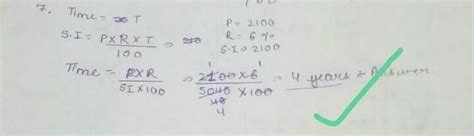 7. Time = T
P = 2100
S.I = P×R×T / 100
R = 6%
S.I = 2100
Time = P×R / SI×100 ⇒ 2100×6 / 5040 ×100 ⇒ 4 years Answer
4